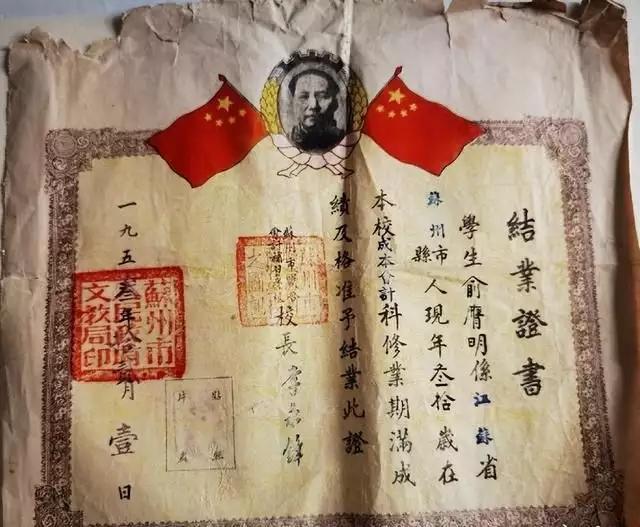 結業證書
學生俞膺明係江蘇省
蘇州市縣人現年叁拾歲在
本校成本會計科修業期滿成
績及格准予結業此證
蘇州市
會計補習學校
校長李
一九五叁年
月壹日
蘇州市
文教局印
貼
片